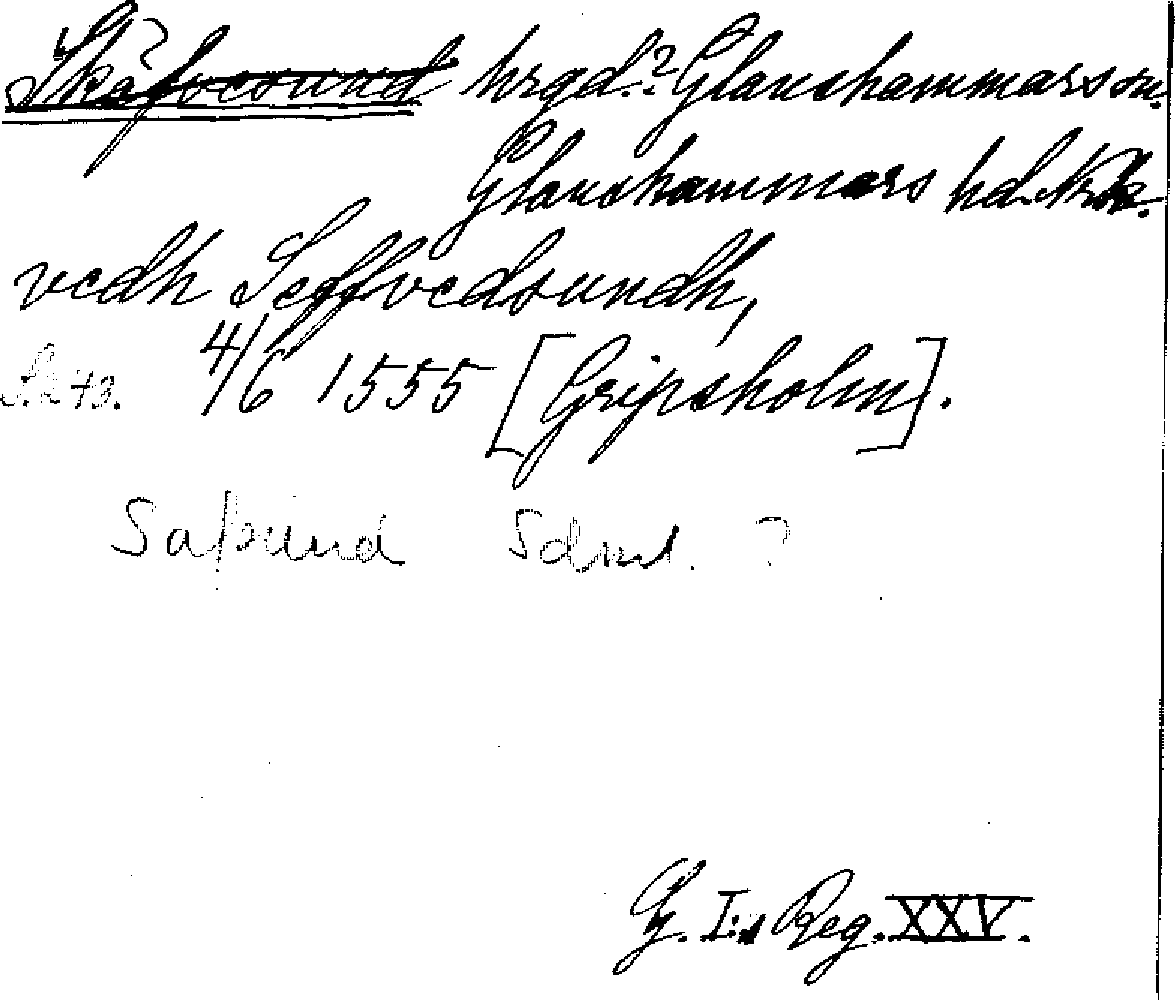 Skäfvesund hrgd.? Glanshammars sn.
Glanshammars hd. Nrk.
vedh Seffvedsundh,
S. 273. 4/6 1555 [Gripsholm].
Saxund Sdml. ?
G. I:s Reg. XXV.